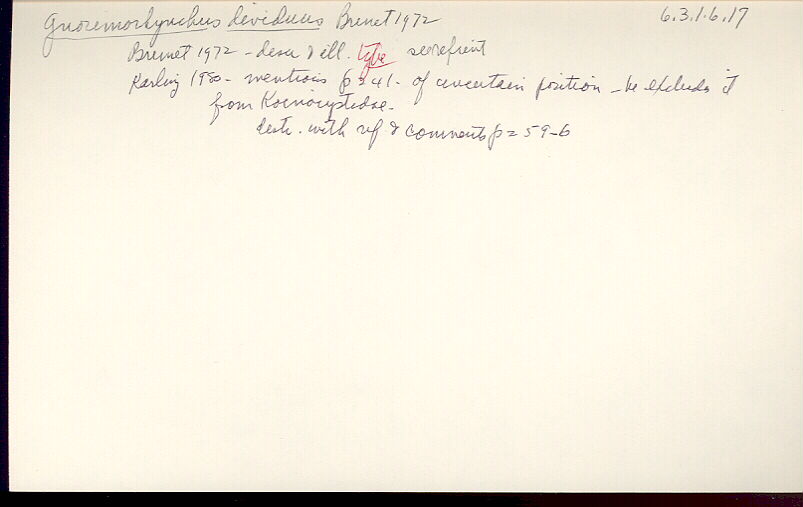 Gnorimorhynchus dividuus Brunet 1972 6.3.1.6.17
Brunet 1972 - descr & ill. type see refrint
Karling 1980 - mentions p 241 - of uncertain position - he excludes it
from Koinocystidae -
distr. with ref & comments p 259-6